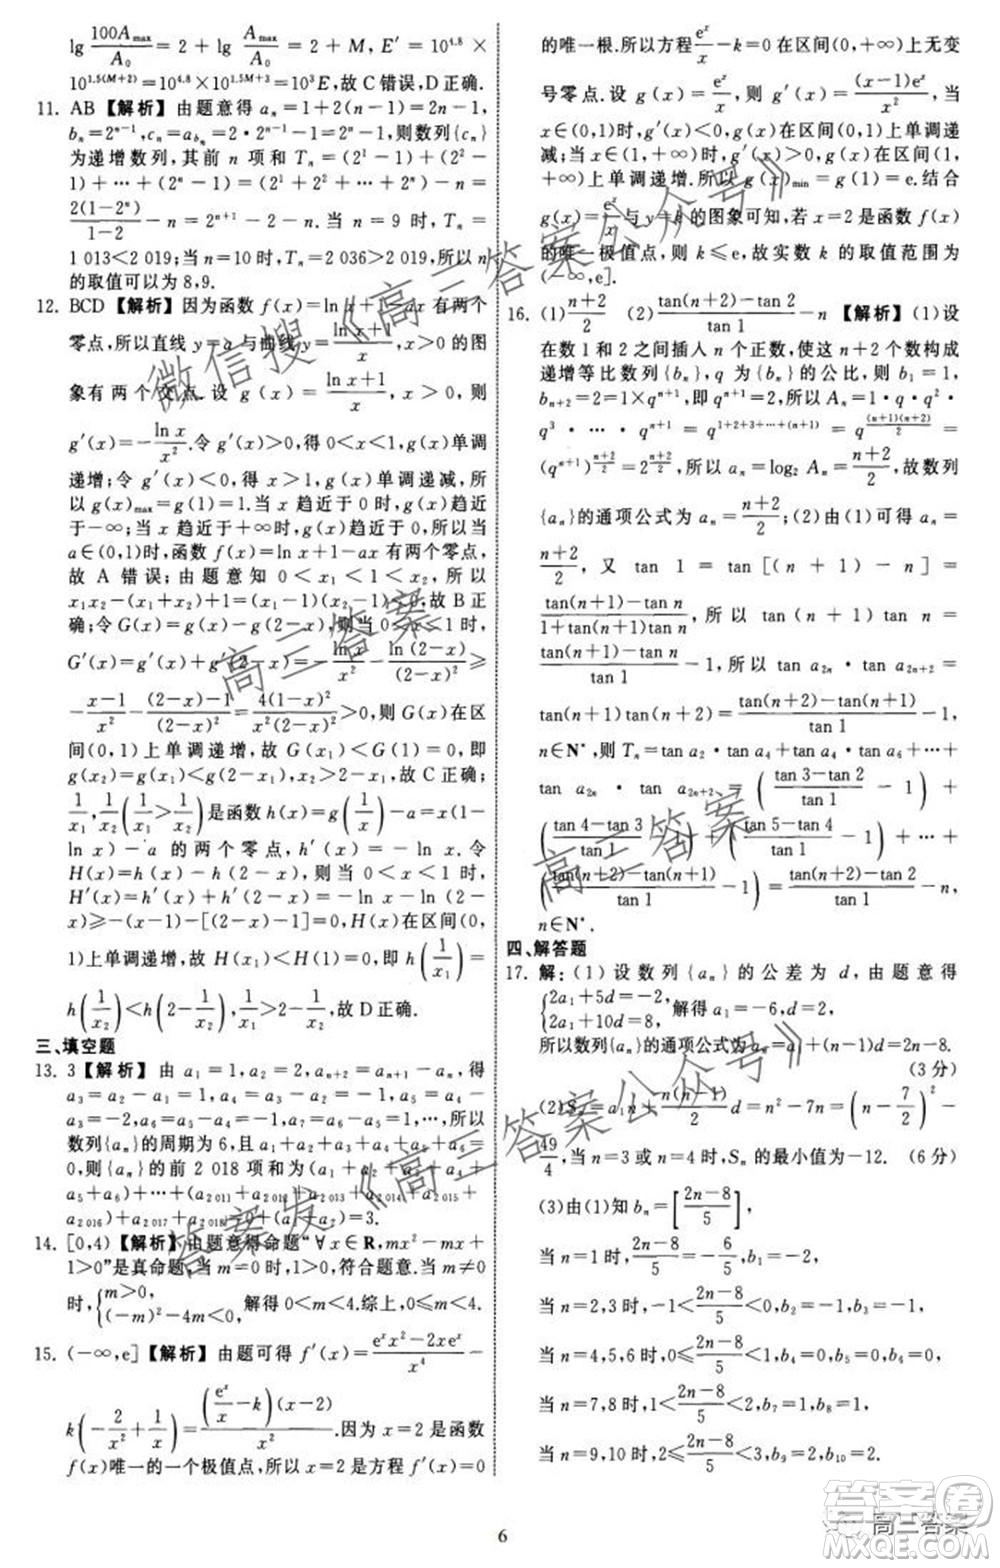 lg 100A_max/A_0 = 2 + lg A_max/A_0 = 2 + M, E′ = 10^4.8 ×
10^1.5(M+2) = 10^4.8 × 10^1.5M+3 = 10^3 E, 故 C 错误, D 正确.
11. AB 【解析】 由题意得 a_n = 1 + 2(n−1) = 2n−1,
b_n = 2^(n−1), c_n = a_(b_n) = 2·2^(n−1) − 1 = 2^n − 1, 则数列{c_n}
为递增数列, 其前 n 项和 T_n = (2^1−1) + (2^2−
1) + ⋯ + (2^n−1) = (2^1 + 2^2 + ⋯ + 2^n) − n =
2(1−2^n)/(1−2) − n = 2^(n+1) − 2 − n. 当 n = 9 时, T_n =
1 013 < 2 019; 当 n = 10 时, T_n = 2 036 > 2 019, 所以 n
的取值可以为 8,9.
12. BCD 【解析】 因为函数 f(x) = ln x + 1 − ax 有两个
零点, 所以直线 y = a 与曲线 y = (ln x+1)/x 的图
象有两个交点. 设 g(x) = (ln x+1)/x, 则
g′(x) = −ln x/x^2. 令 g′(x) > 0, 得 0 < x < 1, g(x) 单调
递增; 令 g′(x) < 0, 得 x > 1, g(x) 单调递减, 所
以 g(x)_max = g(1) = 1; 当 x 趋近于 0 时, g(x) 趋
于 −∞; 当 x 趋近于 +∞ 时, g(x) 趋近于 0, 所以当
a∈(0,1)时, 函数 f(x) = ln x + 1 − ax 有两个零点,
故 A 错误; 由题意知 0 < x_1 < 1 < x_2, 所以
x_1x_2 − (x_1+x_2) = x_1(x_2−1) − x_2 < 0, 故 B 正
确; 令 G(x) = g(x) − g(2−x), 则当 0 < x < 1 时,
G′(x) = g′(x) + g′(2−x) = −ln x/x^2 − ln(2−x)/(2−x)^2 ≥
−(x−1)/x^2 − (2−x−1)/(2−x)^2 = 4(1−x)^2/(x^2(2−x)^2) > 0, 所以 G(x) 在区
间(0,1)上单调递增, 故 G(x_1) < G(1) = 0, 即
g(x_2) = g(x_1) < g(2−x_1), 故 C 正确;
1/x_1, 1/x_2 (1/x_1 > 1/x_2) 是函数 h(x) = g(1/x) − a = x(1−
ln x) − a 的两个零点, h′(x) = −ln x. 令
H(x) = h(x) − h(2−x), 则当 0 < x < 1 时,
H′(x) = h′(x) + h′(2−x) = −ln x − ln(2−
x) ≥ −(x−1) − [(2−x)−1] = 0, H(x) 在区间(0,
1)上单调递增, 所以 H(x_1) < H(1) = 0, 即 h(1/x_1) =
h(1/x_2) < h(2−1/x_2), 1/x_1 > 2−1/x_2, 故 D 正确.
三、填空题
13. 3 【解析】 由 a_1 = 1, a_2 = 2, a_(n+2) = a_(n+1) − a_n, 得
a_3 = a_2 − a_1 = 1, a_4 = a_3 − a_2 = −1, a_5 = a_4 −
a_3 = −2, a_6 = a_5 − a_4 = −1, a_7 = a_6 − a_5 = 1, ⋯, 所以
数列{a_n}的周期为 6, 且 a_1 + a_2 + a_3 + a_4 + a_5 + a_6 =
0, 则数列{a_n}的前 2 018 项和为 (a_1+a_2+a_3+a_4+
a_5+a_6) + ⋯ + (a_2 011 + a_2 012 + a_2 013 + a_2 014 + a_2 015 +
a_2 016) + (a_2 017 + a_2 018) = a_1 + a_2 = 3.
14. [0,4) 【解析】 由题意得命题“∀x∈R, mx^2 − mx +
1 > 0”是真命题, 当 m = 0 时, 1 > 0, 符合题意. 当 m ≠ 0
时, {m > 0, (−m)^2 − 4m < 0, 解得 0 < m < 4. 综上, 0 ≤ m < 4.
15. (−∞,e] 【解析】 由题可得 f′(x) = (e^x x^2 − 2xe^x)/x^4 −
k(−2/x^2 + 1/x) = (e^x/x − k)(x−2)/x^2. 因为 x = 2 是函数
f(x)唯一的一个极值点, 所以 x = 2 是方程 f′(x) = 0
的唯一根. 所以方程 e^x/x − k = 0 在区间(0,+∞)上无变
号零点. 设 g(x) = e^x/x, 则 g′(x) = (x−1)e^x/x^2, 当
x∈(0,1)时, g′(x) < 0, g(x)在区间(0,1)上单调递
减; 当 x∈(1,+∞)时, g′(x) > 0, g(x)在区间(1,+
∞)上单调递增. 所以 g(x)_min = g(1) = e. 结合
g(x) = e^x/x 与 y = k 的图象可知, 若 x = 2 是函数 f(x)
的唯一极值点, 则 k ≤ e, 故实数 k 的取值范围为
(−∞,e].
16. (1) (n+2)/2 (2) (tan(n+2)−tan 2)/tan 1 − n 【解析】 (1)设
在数 1 和 2 之间插入 n 个正数, 使这 n+2 个数构成
递增等比数列{b_n}, q 为的公比, 则 b_1 = 1,
b_(n+2) = 2 = 1×q^(n+1), 即 q^(n+1) = 2, 所以 A_n = 1·q·q^2·
q^3·⋯·q^(n+1) = q^(1+2+3+⋯+(n+1)) = q^((n+1)(n+2)/2) =
(q^(n+1))^((n+2)/2) = 2^((n+2)/2), 所以 a_n = log_2 A_n = (n+2)/2, 故数列
{a_n}的通项公式为 a_n = (n+2)/2; (2)由(1)可得 a_n =
(n+2)/2, 又 tan 1 = tan [(n+1)−n] =
(tan(n+1)−tan n)/(1+tan(n+1)tan n), 所以 tan(n+1)tan n =
(tan(n+1)−tan n)/tan 1 − 1, 所以 tan a_2n · tan a_(2n+2) =
tan(n+1)tan(n+2) = (tan(n+2)−tan(n+1))/tan 1 − 1,
n∈N*, 则 T_n = tan a_2 · tan a_4 + tan a_4 · tan a_6 + ⋯ +
tan a_2n · tan a_(2n+2) = ((tan 3−tan 2)/tan 1 − 1) +
((tan 4−tan 3)/tan 1 − 1) + ((tan 5−tan 4)/tan 1 − 1) + ⋯ +
((tan(n+2)−tan(n+1))/tan 1 − 1) = (tan(n+2)−tan 2)/tan 1 − n,
n∈N*.
四、解答题
17. 解: (1) 设数列{a_n}的公差为 d, 由题意得
{2a_1+5d=−2, 2a_1+10d=8, 解得 a_1 = −6, d = 2.
所以数列{a_n}的通项公式为 a_n = a_1 + (n−1)d = 2n−8.
(3 分)
(2) S_n = a_1n + n(n−1)/2 d = n^2 − 7n = (n − 7/2)^2 −
49/4, 当 n = 3 或 n = 4 时, S_n 的最小值为 −12. (6 分)
(3) 由(1)知 b_n = [(2n−8)/5],
当 n = 1 时, b_1 = [−6/5] = −2,
当 n = 2,3 时, −1 < (2n−8)/5 < 0, b_2 = b_3 = −1,
当 n = 4,5,6 时, 0 ≤ (2n−8)/5 < 1, b_4 = b_5 = b_6 = 0,
当 n = 7,8 时, 1 < (2n−8)/5 < 2, b_7 = b_8 = 1,
当 n = 9,10 时, 2 ≤ (2n−8)/5 < 3, b_9 = b_10 = 2.
6
微信搜《高三答案公众号》
高三答案
高三答案
答案发《高三答案公众号》
高三答案
答案圈
MXQE.COM